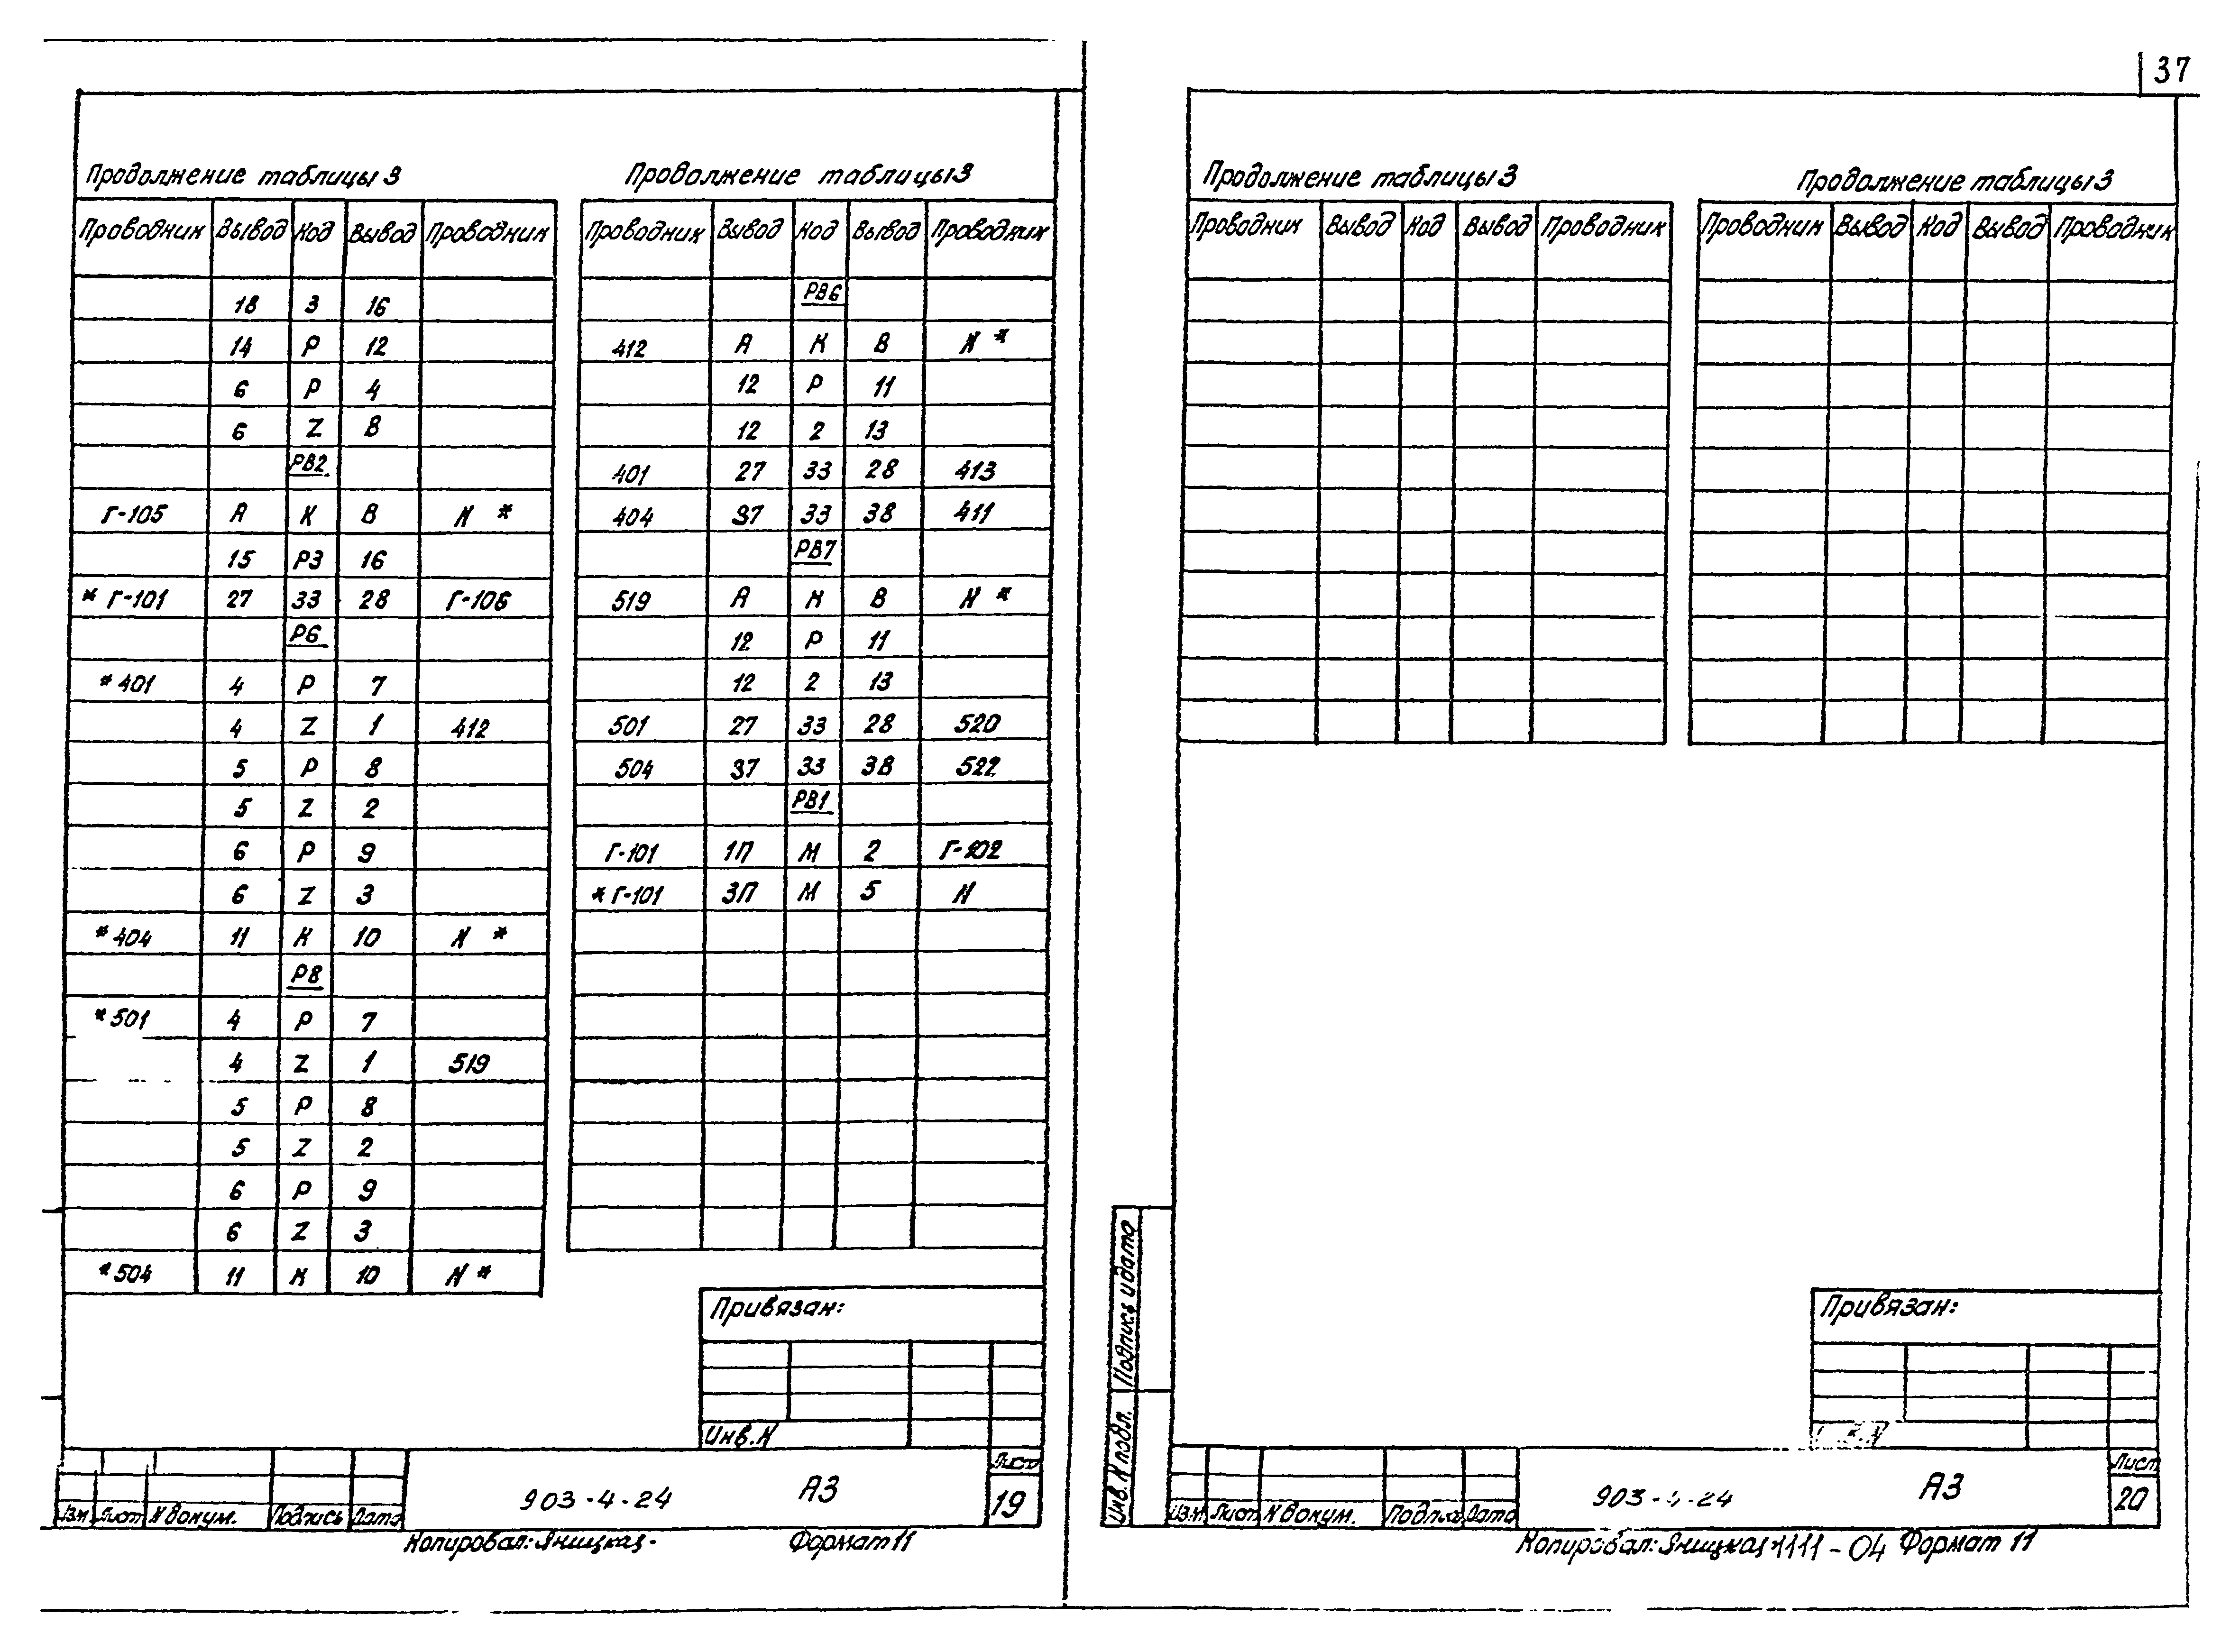 37
Продолжение таблицы 3
Проводник Вывод Код Вывод Проводник
18 З 16
14 Р 12
6 Р 4
6 Z 8
РВ2
Г-105 А К В N *
15 РЗ 16
* Г-101 27 33 28 Г-106
Р6
* 401 4 Р 7
4 Z 1 412
5 Р 8
5 Z 2
6 Р 9
6 Z 3
* 404 11 К 10 N *
Р8
* 501 4 Р 7
4 Z 1 519
5 Р 8
5 Z 2
6 Р 9
6 Z 3
* 504 11 К 10 N *
Продолжение таблицы 3
Проводник Вывод Код Вывод Проводник
РВ6
412 А К В N *
12 Р 11
12 2 13
401 27 33 28 413
404 37 33 38 411
РВ7
519 А К В N *
12 Р 11
12 2 13
501 27 33 28 520
504 37 33 38 522
РВ1
Г-101 1П М 2 Г-102
* Г-101 3П М 5 N
Привязан:
Инв.N
Изм Лист N докум. Подпись Дата
903-4-24 А3
Лист
19
Копировал: Яницкая- Формат 11
Продолжение таблицы 3
Проводник Вывод Код Вывод Проводник
Продолжение таблицы 3
Проводник Вывод Код Вывод Проводник
Подпись и дата
Инв. N подл.
Привязан:
Изм. Лист N докум. Подпись Дата
903-4-24 А3
Лист
20
Копировал: Яницкая 1111-04 Формат 11